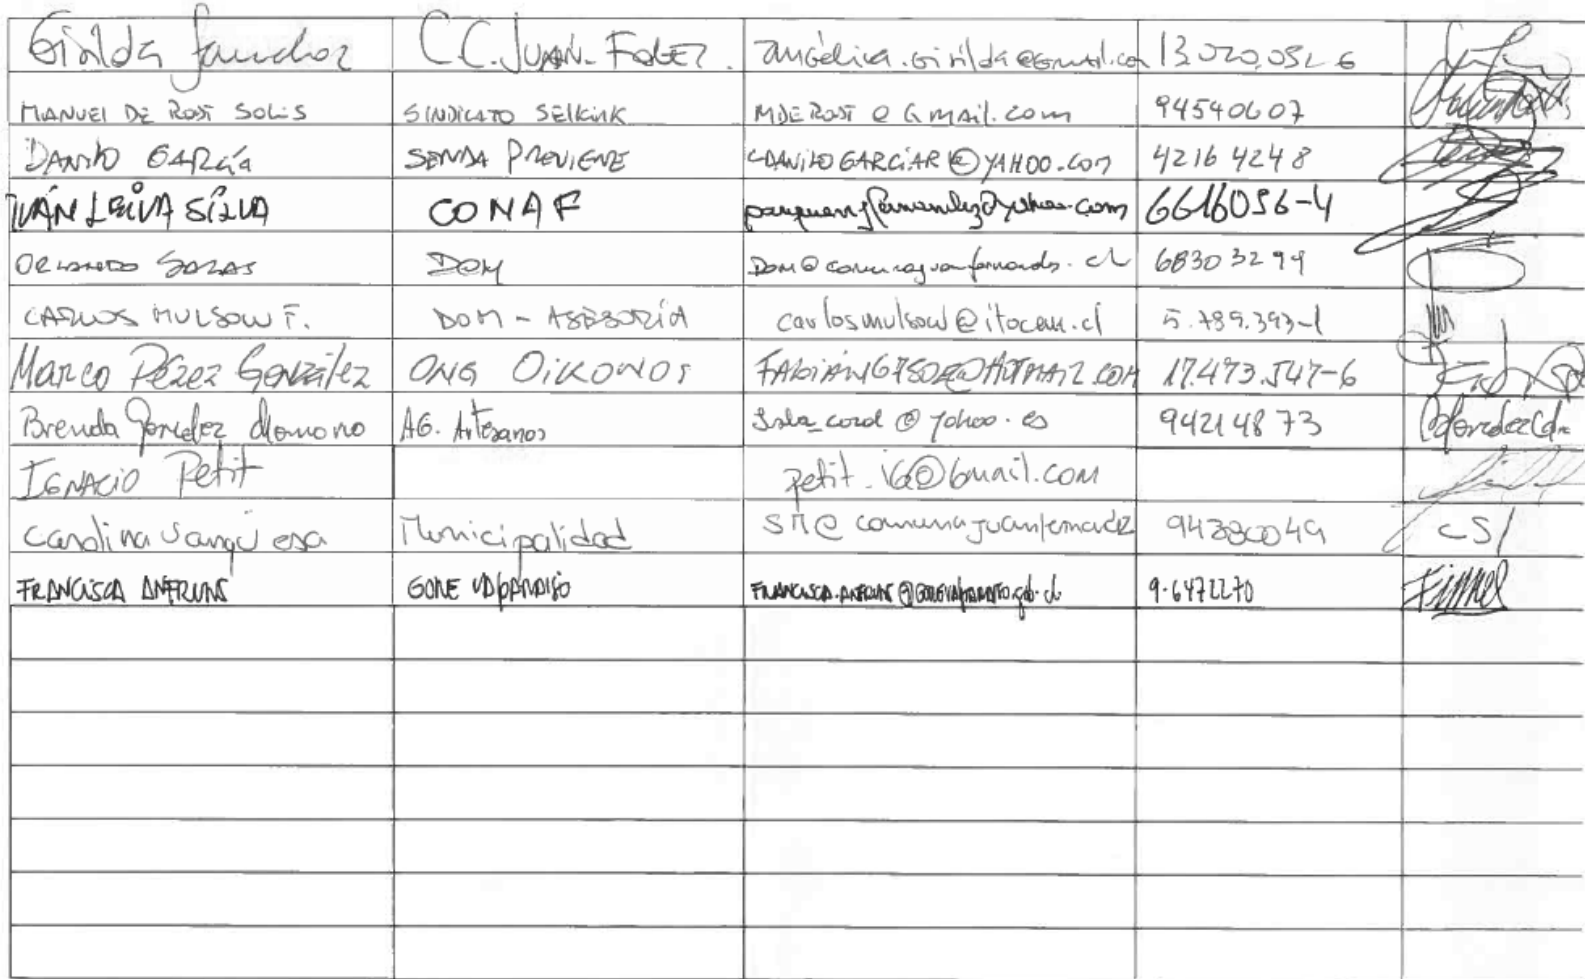 Girilda Sanchez C.C. JUAN. FDEZ. angélica.girilda@gmail.co 13.020.052 6
MANUEL DE RODT SOLIS SINDICATO SELKIRK MDERODT @ GMAIL.COM 94540607
DANILO GARCÍA SENDA PREVIENE CDANILOGARCIAR@YAHOO.COM 4216 4248
IVÁN LEIVA SILVA CONAF @yahoo.com 6616056-4
ORLANDO SALAS DOM DOM@comunajuanfernandez.cl 68303299
CARLOS MULSOW F. DOM - ASESORÍA carlosmulsow@itocam.cl 5.789.393-1
Marco Pérez González ONG OIKONOS @HOTMAIL.COM 17.473.547-6
Brenda González AG. Artesanos coral @ yahoo.es 94214873
IGNACIO Petit petit_ig@Gmail.com
Carolina Sangüesa Municipalidad comunajuanfernandez CS
FRANCISCA ANFRUNS GORE VALPARAISO 9-6472270